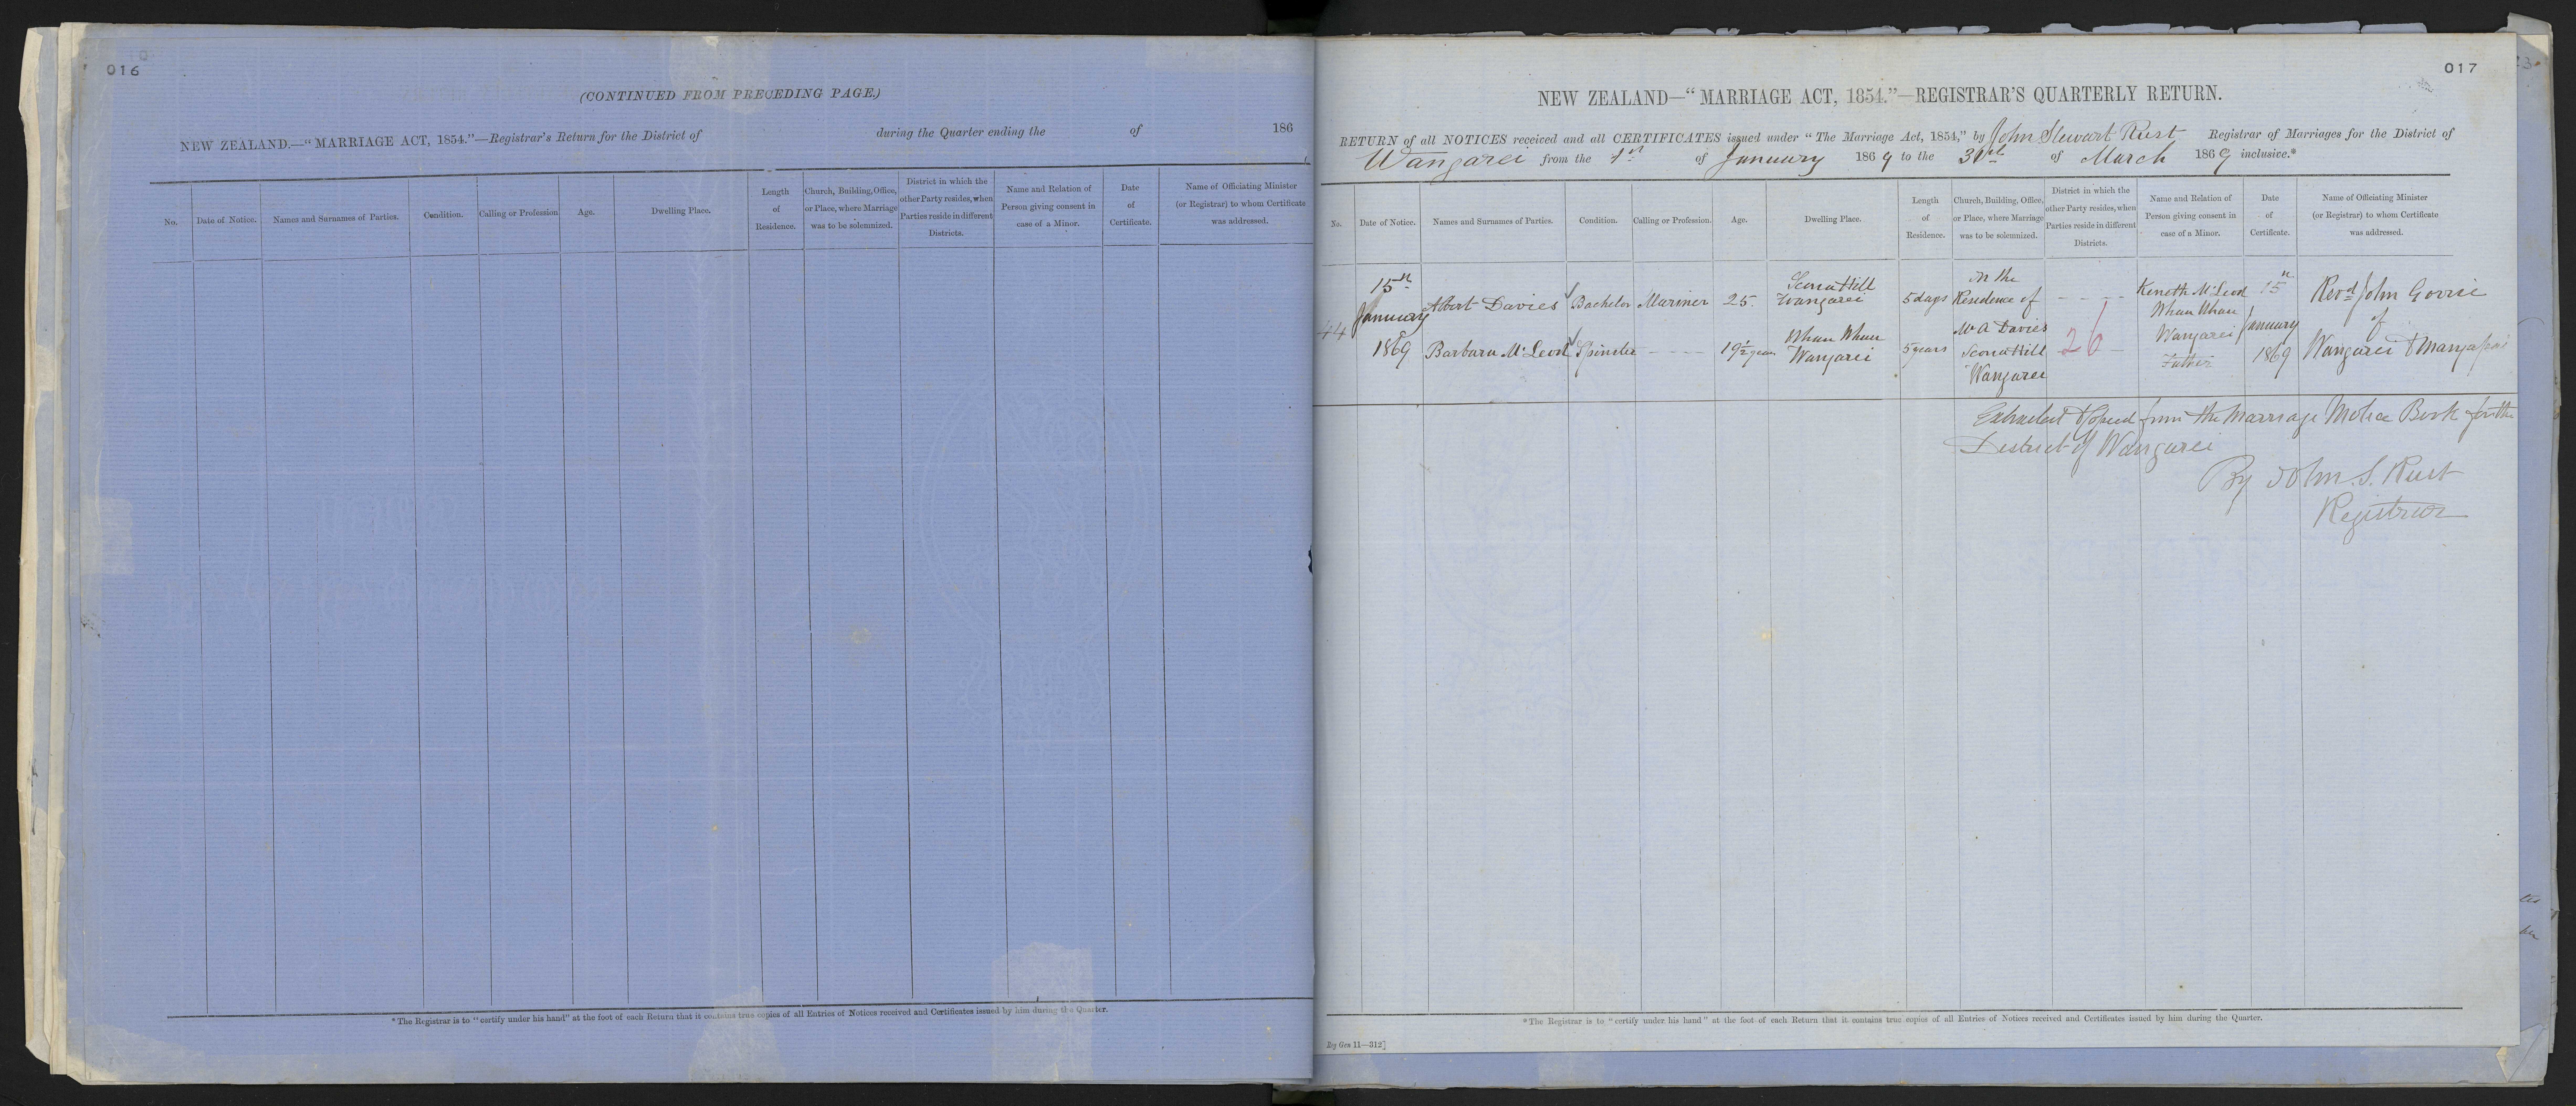 016
(CONTINUED FROM PRECEDING PAGE.)
NEW ZEALAND.—"MARRIAGE ACT, 1854."—Registrar's Return for the District of during the Quarter ending the of 186
No.
Date of Notice.
Names and Surnames of Parties.
Condition.
Calling or Profession
Age.
Dwelling Place.
Length
of
Residence.
Church, Building, Office,
or Place, where Marriage
was to be solemnized.
District in which the
other Party resides, when
Parties reside in different
Districts.
Name and Relation of
Person giving consent in
case of a Minor.
Date
of
Certificate.
Name of Officiating Minister
(or Registrar) to whom Certificate
was addressed.
*The Registrar is to "certify under his hand" at the foot of each Return that it contains true copies of all Entries of Notices received and Certificates issued by him during the Quarter.
017
NEW ZEALAND—"MARRIAGE ACT, 1854."—REGISTRAR'S QUARTERLY RETURN.
RETURN of all NOTICES received and all CERTIFICATES issued under "The Marriage Act, 1854," by John Stewart Rust Registrar of Marriages for the District of
Wangarei from the 1st of January 1869 to the 31st of March 1869 inclusive.*
No.
Date of Notice.
Names and Surnames of Parties.
Condition.
Calling or Profession.
Age.
Dwelling Place.
Length
of
Residence.
Church, Building, Office,
or Place, where Marriage
was to be solemnized.
District in which the
other Party resides, when
Parties reside in different
Districts.
Name and Relation of
Person giving consent in
case of a Minor.
Date
of
Certificate.
Name of Officiating Minister
(or Registrar) to whom Certificate
was addressed.
44
15th
January
1869
Albert Davies
Barbara McLeod
Bachelor
Spinster
Mariner
- - - -
25.
19½ years
Wangarei
Whau Whau
Wangarei
5 days
5 years
In the
Residence of
Mr A Davies
Wangarei
- - - -
26
Keneth McLeod
Whau Whau
Wangarei
Father
15th
January
1869
Revd John Gorrie
of
Wangarei & Mangapai
Extracted & Copied from the Marriage Notice Book for the
District of Wangarei
By John. S. Rust
Registrar
*The Registrar is to "certify under his hand" at the foot of each Return that it contains true copies of all Entries of Notices received and Certificates issued by him during the Quarter.
Reg Gen 11—312]